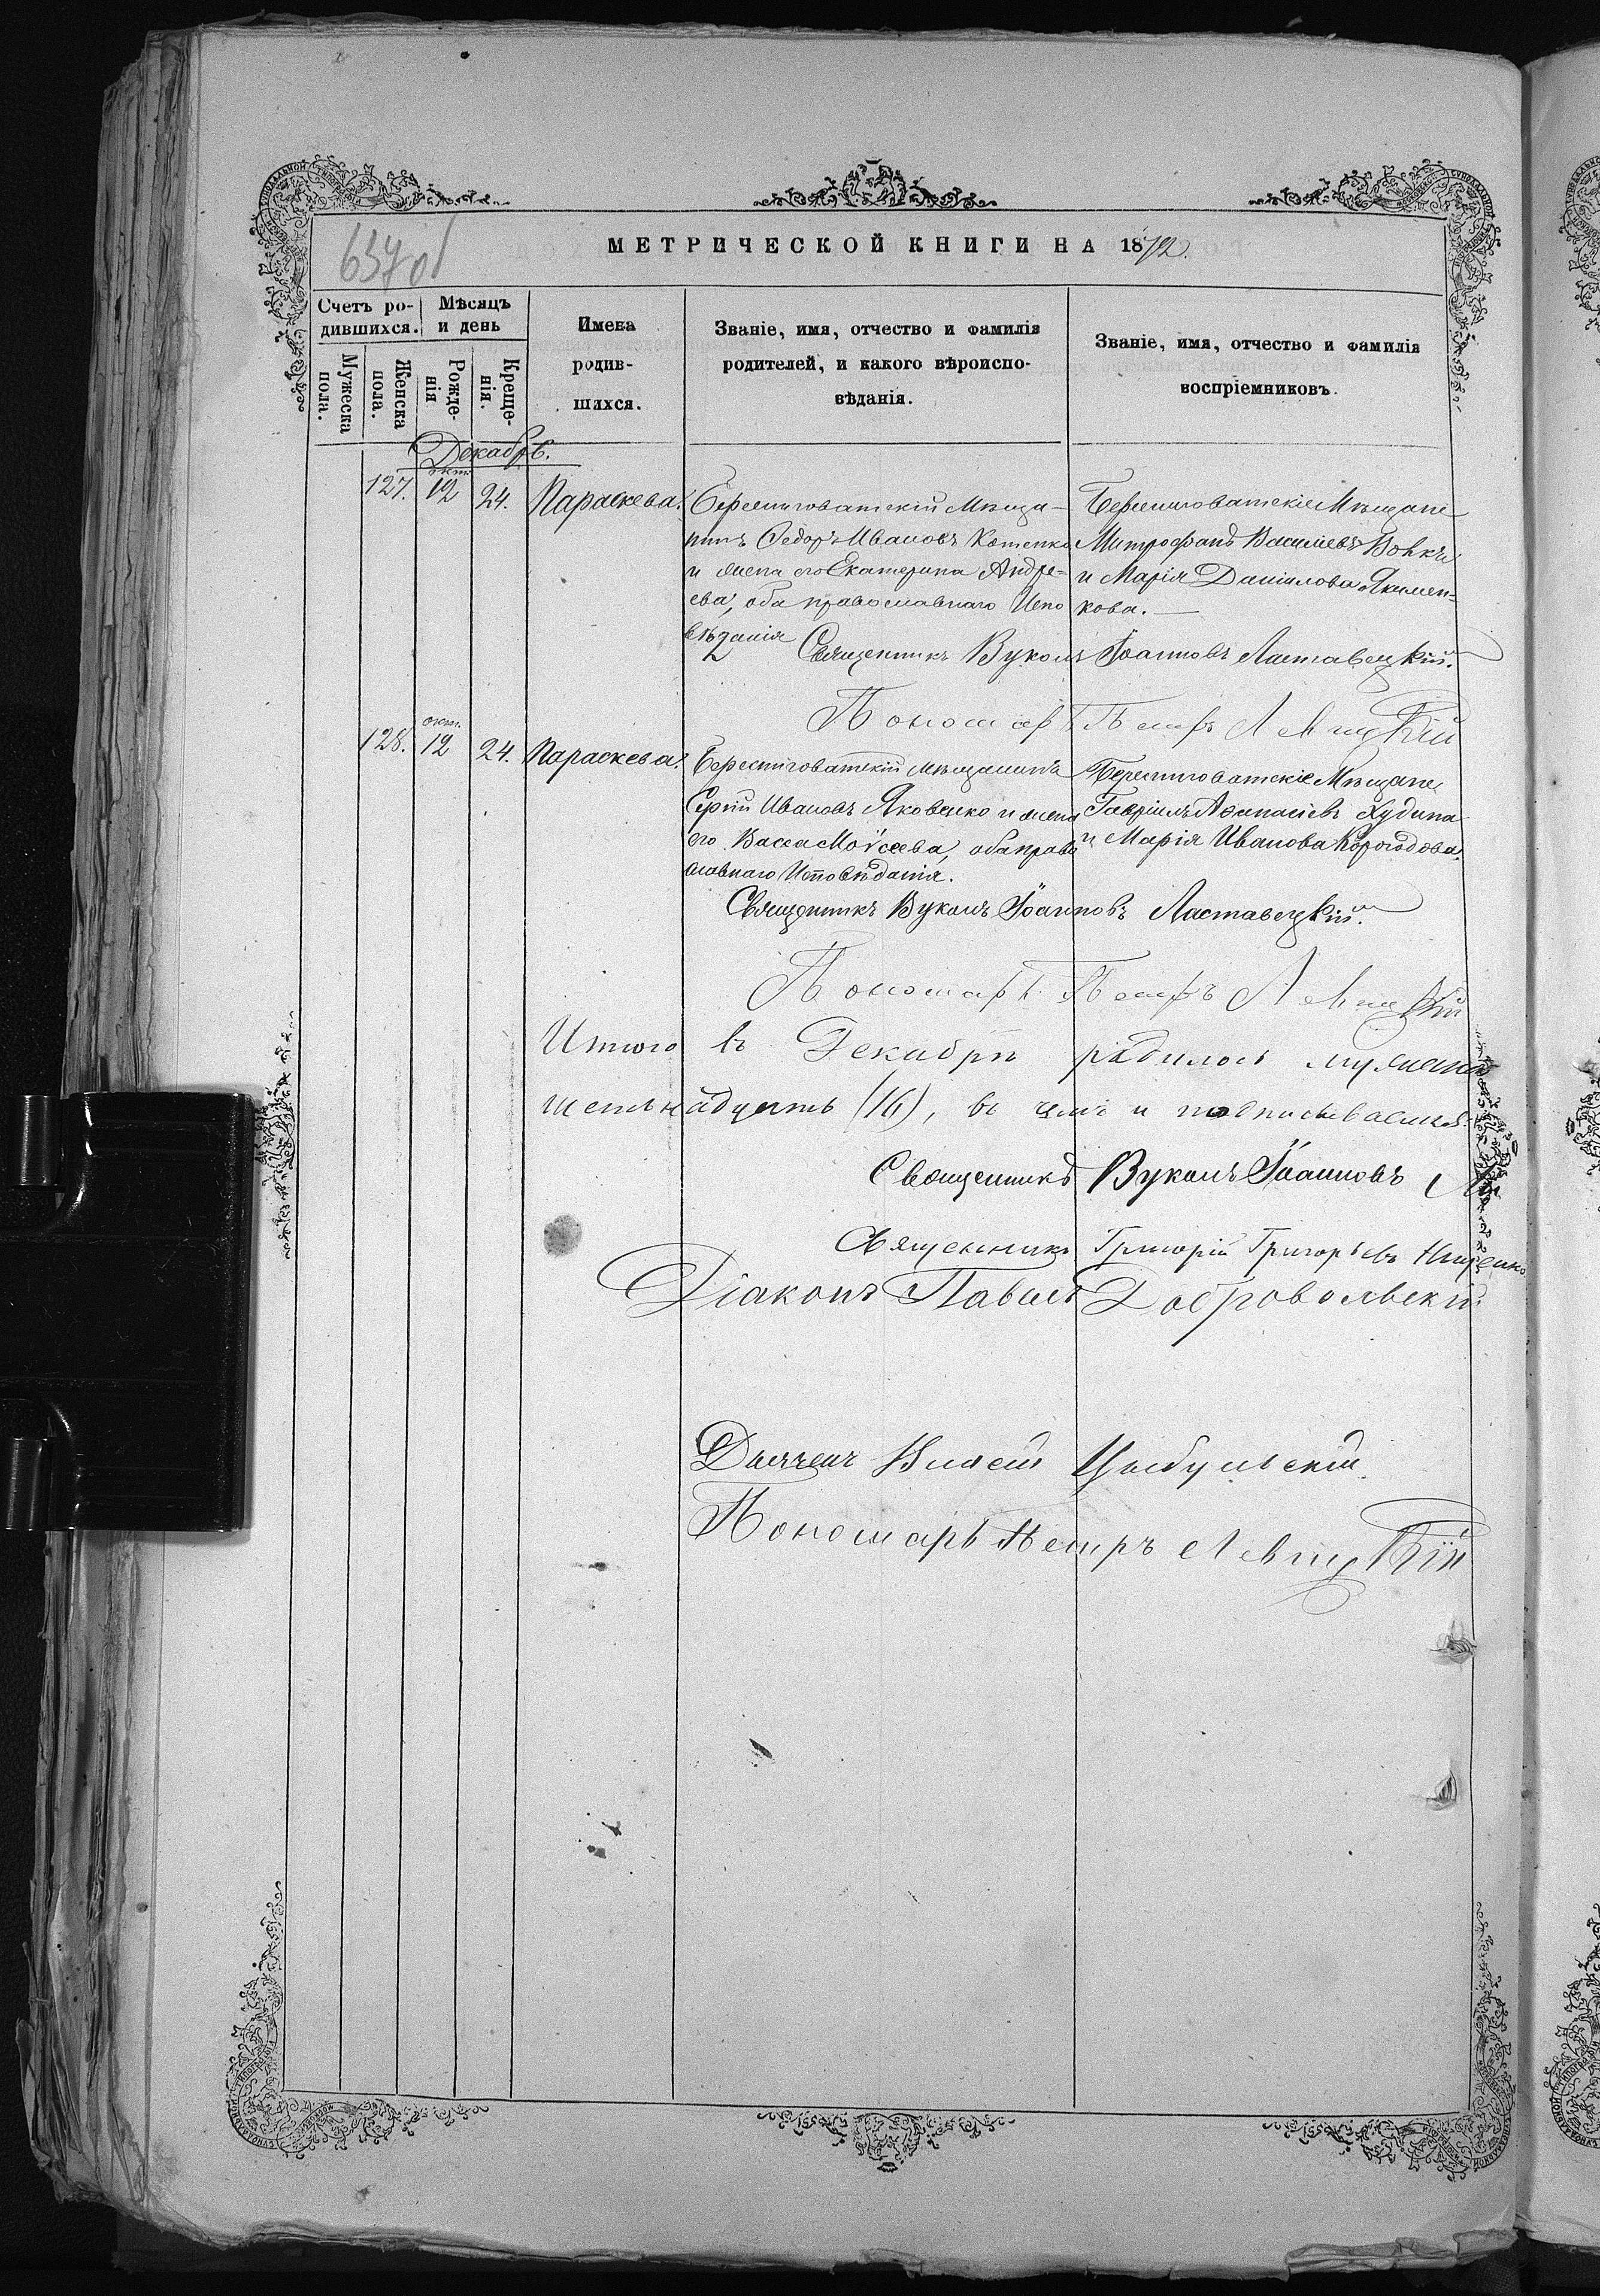 637об
МЕТРИЧЕСКОЙ КНИГИ НА 1872.
Счетъ ро-
дившихся.
Мѣсяцъ
и день
Мужеска
пола.
Женска
пола.
Рожде-
нія
Креще-
нія.
Имена
родив-
шихся.
Званіе, имя, отчество и фамилія
родителей, и какого вѣроиспо-
вѣданія.
Званіе, имя, отчество и фамилія
воспріемниковъ.
Декабрь.
127.
окт.
12
24.
Параскева.
Берестговатскій Мѣща-
нинъ Ѳедоръ Ивановъ Котенко
и жена его Екатерина Андре-
ева, оба православнаго Испо
вѣданія
Берестговатскіе Мѣщане
Митрофанъ Василіевъ
и Марія Даніилова Якимен-
кова.
Священникъ Вуколъ Іоанновъ Ластавецкій.
Пономарь Петръ Левицкій
128.
окт.
12
24.
Параскева.
Берестговатскій мѣщанинъ
Сергій Ивановъ Яковенко и жена
его Васса Моѵсеева, оба право
славнаго Исповѣданія.
Берестговатскіе Мѣщане,
Гавріилъ Аѳанасіевъ Худина
и Марія Иванова Корогодова.
Священникъ Вуколъ Іоанновъ Ластавецкій.
Пономарь Петръ Левицкій
Итого въ Декабрѣ родилось мужеска
шестьнадцать (16), въ чемъ и подписываемся:
Священникъ Вуколъ Іоанновъ
Священникъ Григорій Григорьевъ
Діаконъ Павелъ Добровольскій
Дьячекъ Цыбульскій.
Пономарь Петръ Левицкій